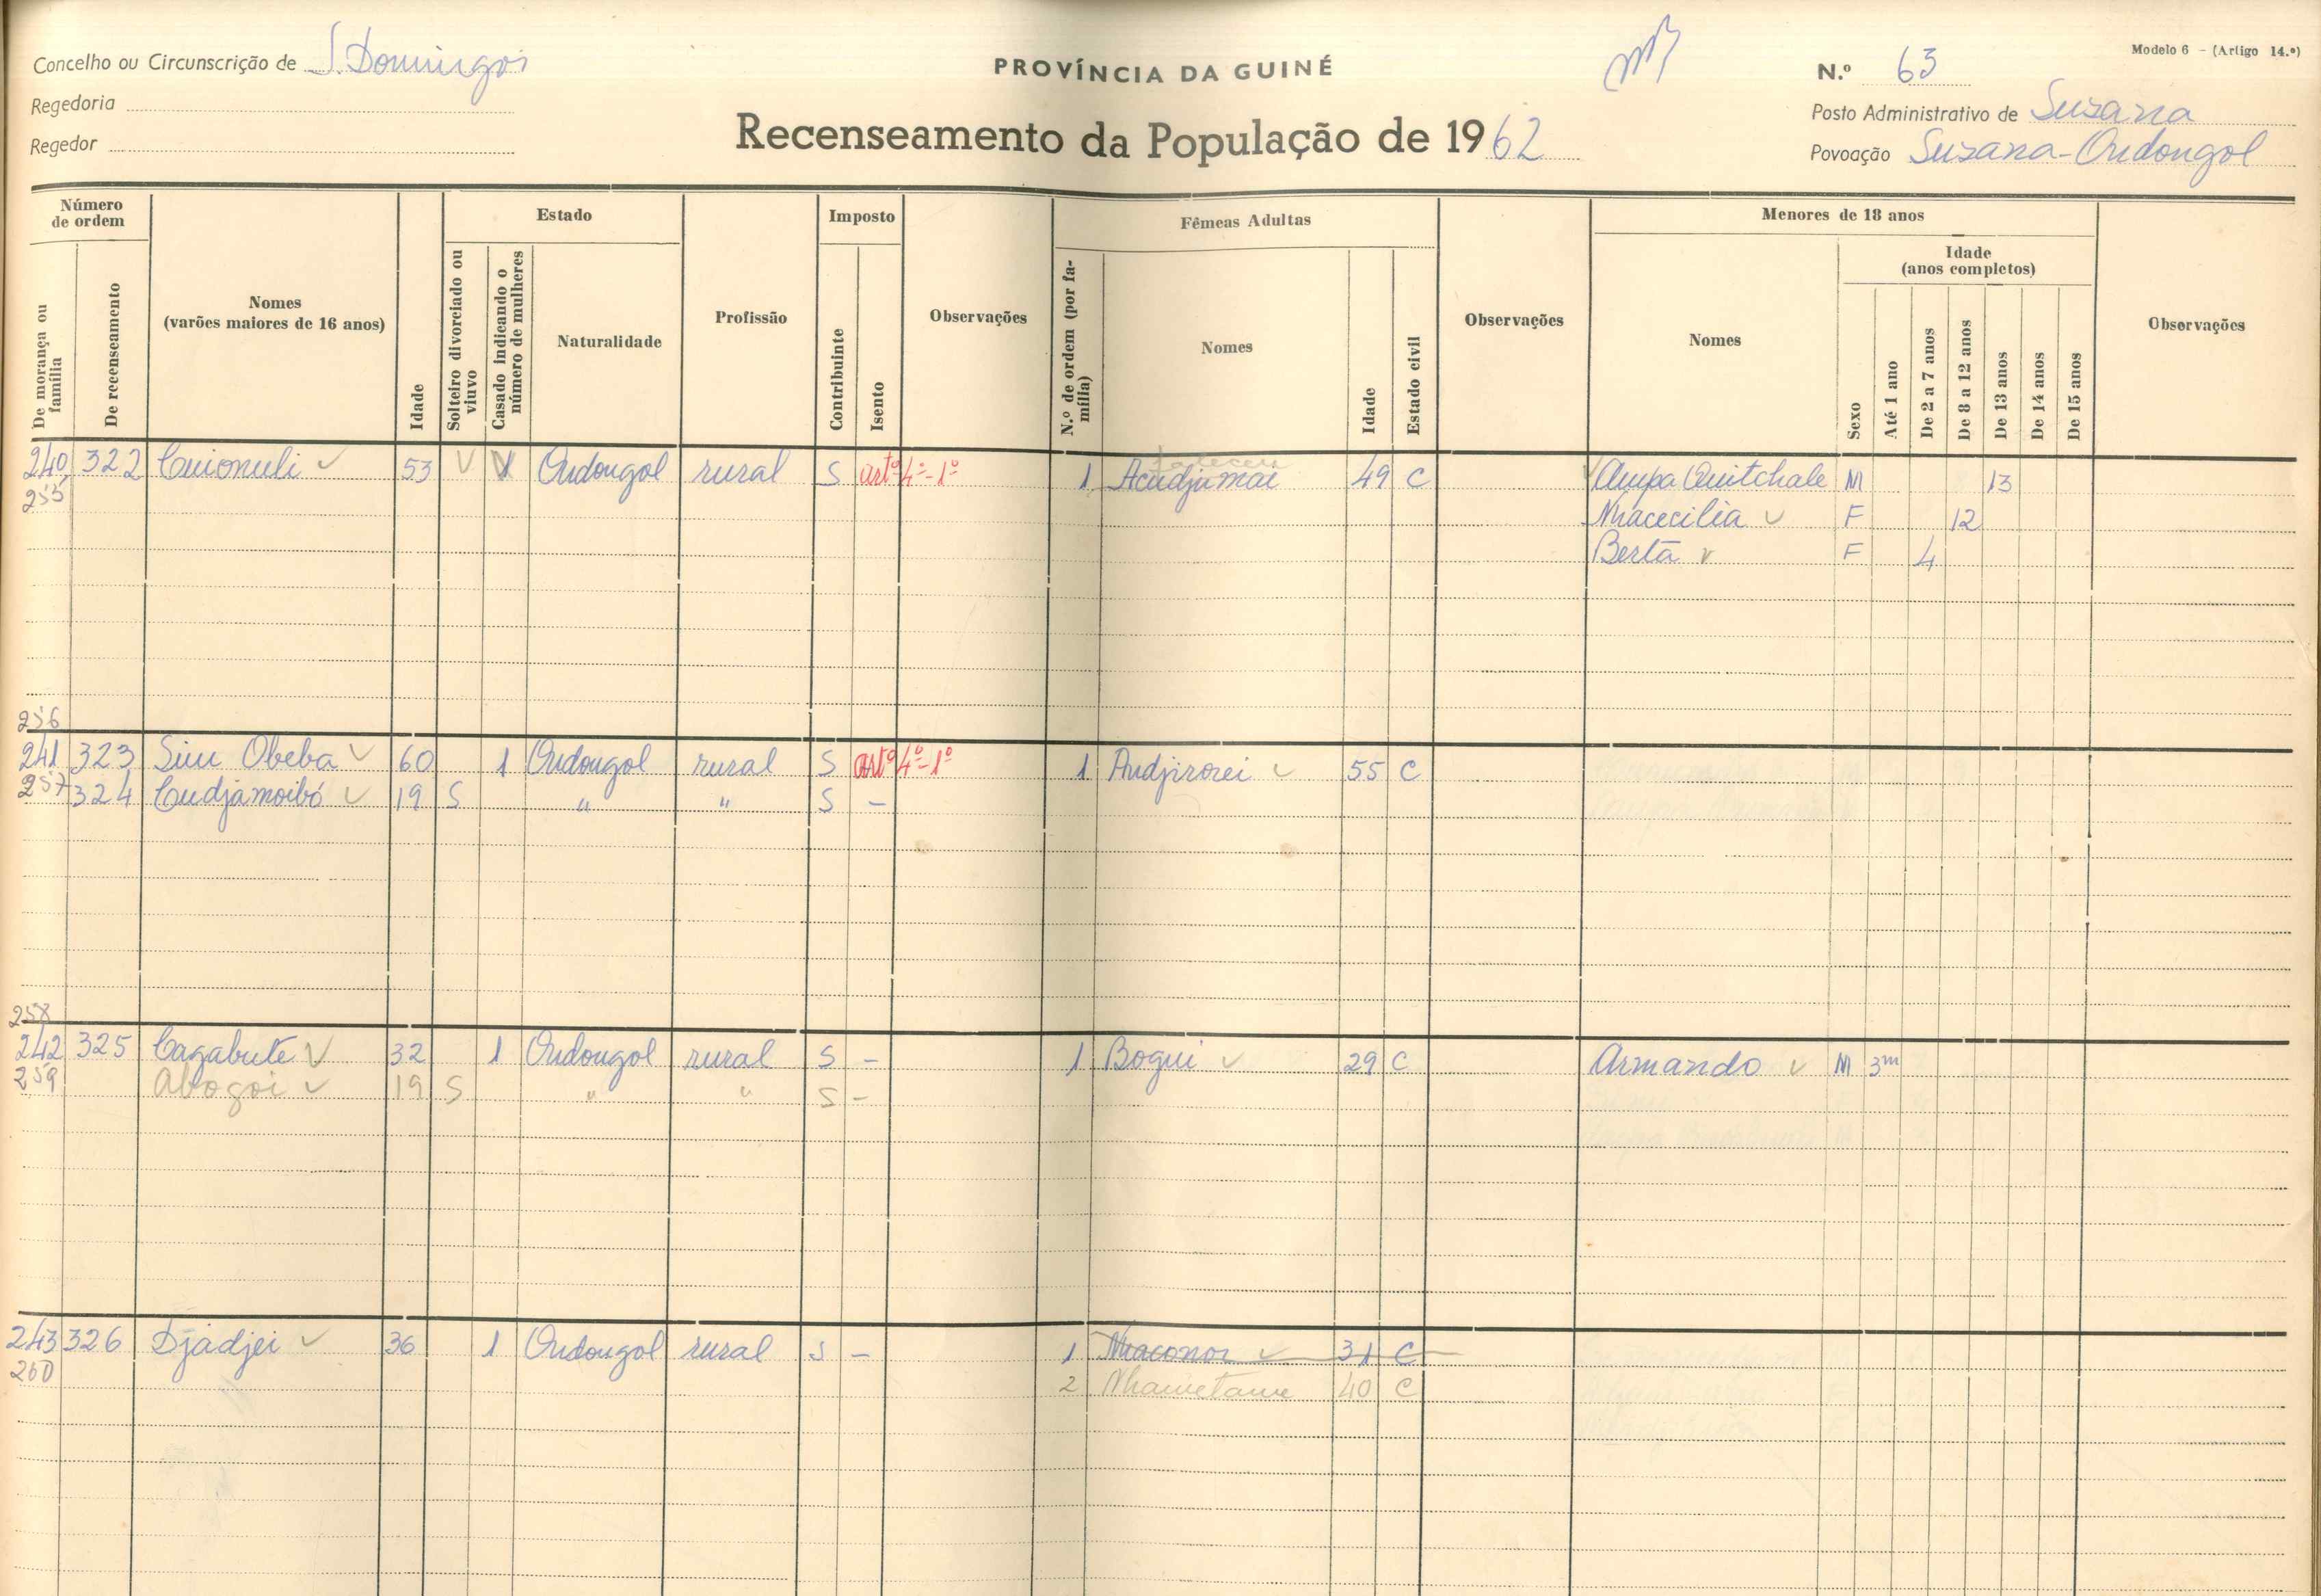 Concelho ou Circunscrição de S. Domingos
Regedoria
Regedor
PROVÍNCIA DA GUINÉ
Recenseamento da População de 1962
Modelo 6 - (Artigo 14.º)
N.º 63
Posto Administrativo de Suzana
Povoação Suzana-Ondongol
Número de ordem
De morança ou família
De recenseamento
Nomes (varões maiores de 16 anos)
Idade
Estado
Solteiro divorciado ou viuvo
Casado indicando o número de mulheres
Naturalidade
Profissão
Imposto
Contribuinte
Isento
Observações
Fêmeas Adultas
N.º de ordem (por família)
Nomes
Idade
Estado civil
Observações
Menores de 18 anos
Nomes
Sexo
Idade (anos completos)
Até 1 ano
De 2 a 7 anos
De 8 a 12 anos
De 13 anos
De 14 anos
De 15 anos
Observações
240 322 Cuionuli 53 V 1 Ondongol rural S artº 4º-1º 1 Acudjumai 49 C Ampa Quitchale M 13
255 Nhacecilia F 12
Berta F 4
256
241 323 Siu Obeba 60 1 Ondongol rural S artº 4º-1º 1 Andjirorei 55 C
257 324 Cudjamoibó 19 S " " S -
258
242 325 Cagabute 32 1 Ondongol rural S - 1 Bogui 29 C Armando M 3m
259 Abogoi 19 S " " S -
243 326 Djadjei 36 1 Ondongol rural S - 1 Nhaconor 31 C
260 2 Nhametame 40 C